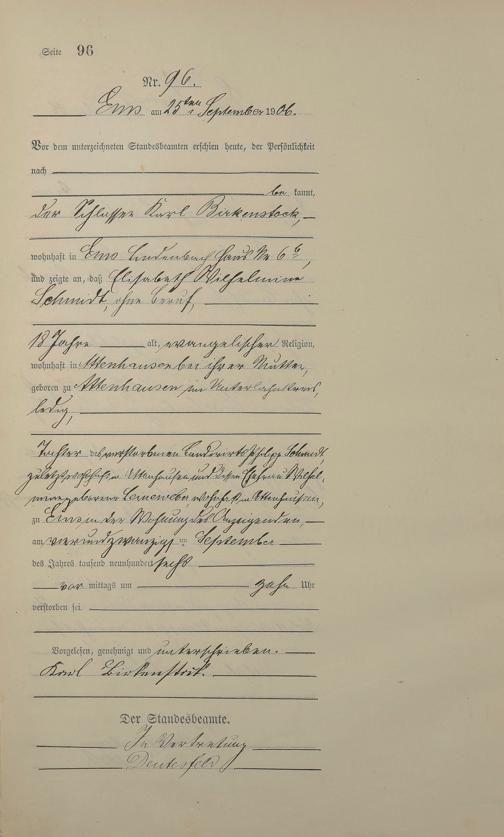 Seite 96
Nr. 96.
Ems am 25ten September 1906.
Vor dem unterzeichneten Standesbeamten erschien heute, der Persönlichkeit
nach
be kannt,
der Schlosser Karl Birkenstock,
wohnhaft in Ems Lindenbach Haus Nr 6b,
und zeigte an, daß Elisabeth Wilhelmine
Schmidt, ohne Beruf,
18 Jahre alt, evangelischer Religion,
wohnhaft in Attenhausen bei ihrer Mutter,
geboren zu Attenhausen im Unterlahnkreis,
ledig,
Tochter des verstorbenen Landwirts Philipp Schmidt,
zuletzt wohnhaft in Attenhausen und dessen Ehefrau Wilhel-
mine geborene wohnhaft in Attenhausen,
zu Ems in der Wohnung des Anzeigenden,
am vierundzwanzigsten September
des Jahres tausend neunhundert sechs
vor mittags um zehn Uhr
verstorben sei.
Vorgelesen, genehmigt und unterschrieben.
Karl Birkenstock.
Der Standesbeamte.
In Vertretung